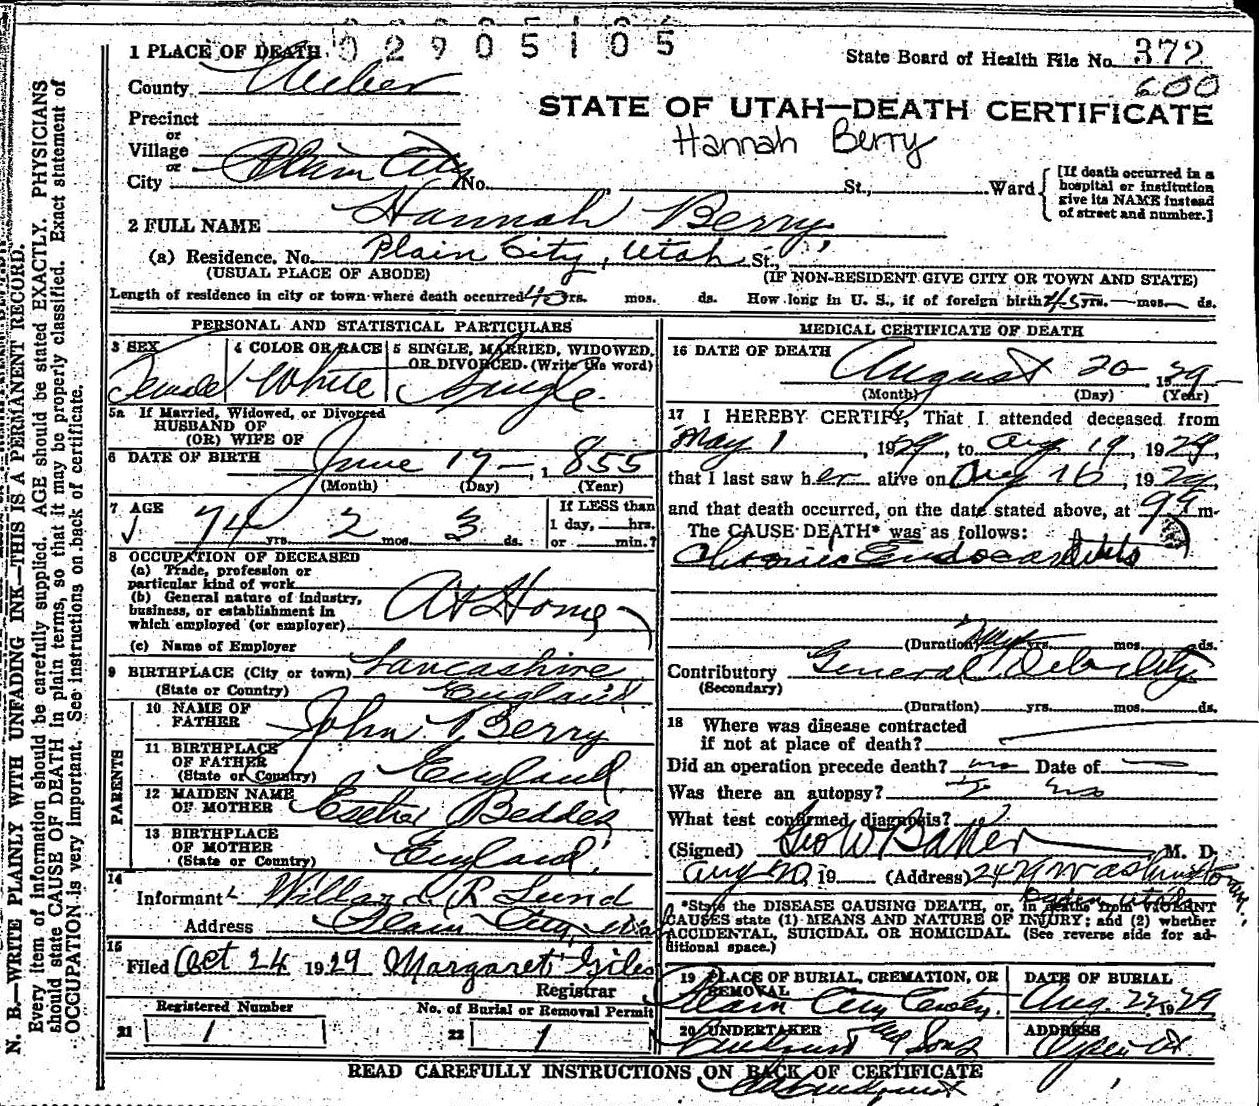 02905105
State Board of Health File No. 372
600
STATE OF UTAH—DEATH CERTIFICATE
Hannah Berry
1 PLACE OF DEATH
County Weber
Precinct
or
Village
or
City Plain City No. St., Ward
[If death occurred in a
hospital or institution
give its NAME instead
of street and number.]
2 FULL NAME Hannah Berry
(a) Residence. No. Plain City, Utah St.,
(USUAL PLACE OF ABODE) (IF NON-RESIDENT GIVE CITY OR TOWN AND STATE)
Length of residence in city or town where death occurred 40 yrs. mos. ds. How long in U. S., if of foreign birth 45 yrs. mos. ds.
PERSONAL AND STATISTICAL PARTICULARS
3 SEX 4 COLOR OR RACE 5 SINGLE, MARRIED, WIDOWED,
OR DIVORCED. (Write the word)
Female White Single
5a If Married, Widowed, or Divorced
HUSBAND OF
(OR) WIFE OF
6 DATE OF BIRTH June 17 — 1,855
(Month) (Day) (Year)
7 AGE 74 yrs. 2 mos. 3 ds.
If LESS than
1 day, hrs.
or min.?
8 OCCUPATION OF DECEASED
(a) Trade, profession or
particular kind of work
(b) General nature of industry,
business, or establishment in
which employed (or employer)
At Home
(c) Name of Employer
9 BIRTHPLACE (City or town) Lancashire
(State or Country) England
PARENTS
10 NAME OF
FATHER John Berry
11 BIRTHPLACE
OF FATHER
(State or Country) England
12 MAIDEN NAME
OF MOTHER Esther Beddes
13 BIRTHPLACE
OF MOTHER
(State or Country) England
14
Informant Willard R Lund
Address Plain City, Uta
15
Filed Oct 24 1929 Margaret Giles
Registrar
Registered Number No. of Burial or Removal Permit
21 1 22 1
MEDICAL CERTIFICATE OF DEATH
16 DATE OF DEATH August 20 — 1929
(Month) (Day) (Year)
17 I HEREBY CERTIFY, That I attended deceased from
May 1, 1929, to Aug 19, 1929,
that I last saw her alive on Aug 16, 1929
and that death occurred, on the date stated above, at m.
The CAUSE DEATH* was as follows:
Chronic Endocarditis
(Duration) yrs. mos. ds.
Contributory General Debility
(Secondary)
(Duration) yrs. mos. ds.
18 Where was disease contracted
if not at place of death?
Did an operation precede death? no Date of
Was there an autopsy? no
What test confirmed diagnosis?
(Signed) Geo W Baker M. D.
Aug 20, 19 (Address) Washington
Ogden Utah
*State the DISEASE CAUSING DEATH, or, in deaths from VIOLENT
CAUSES state (1) MEANS AND NATURE OF INJURY; and (2) whether
ACCIDENTAL, SUICIDAL OR HOMICIDAL. (See reverse side for ad-
ditional space.)
19 PLACE OF BURIAL, CREMATION, OR
REMOVAL
Plain City
DATE OF BURIAL
Aug. 22, 1929
20 UNDERTAKER
& Sons
ADDRESS
Ogden Ut
READ CAREFULLY INSTRUCTIONS ON BACK OF CERTIFICATE
N. B.—WRITE PLAINLY WITH UNFADING INK—THIS IS A PERMANENT RECORD.
Every item of information should be carefully supplied. AGE should be stated EXACTLY. PHYSICIANS
should state CAUSE OF DEATH in plain terms, so that it may be properly classified. Exact statement of
OCCUPATION is very important. See instructions on back of certificate.